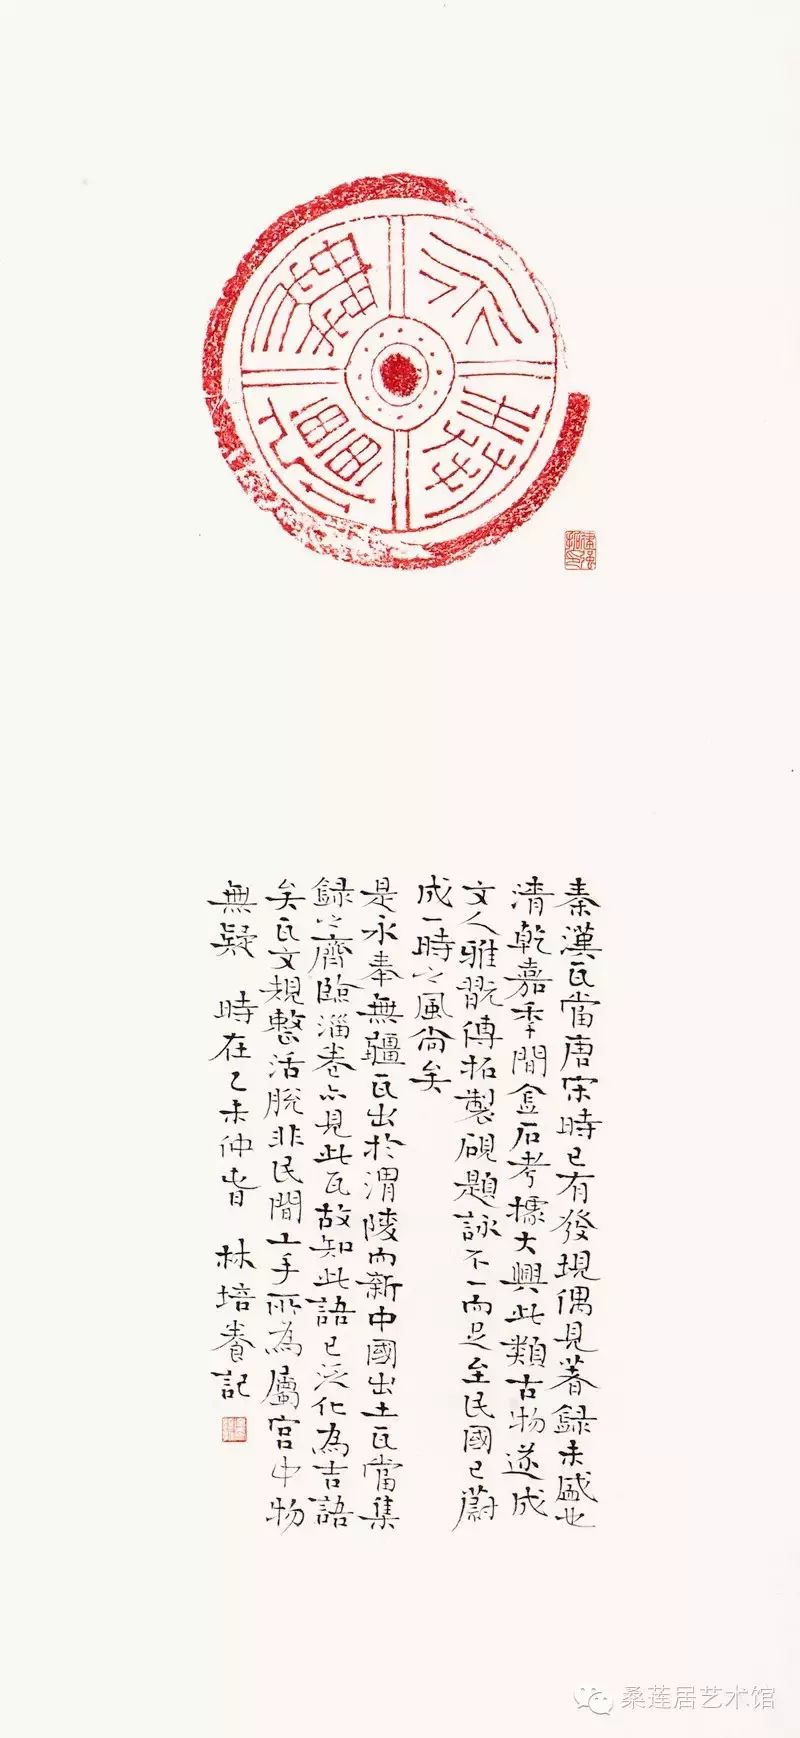 永奉無疆
秦漢瓦當唐宋時已有發現偶見著録未盛也
清乾嘉季間金石考據大興此類古物遂成
文人雅翫傳拓製硯題詠不一而足至民國已蔚
成一時之風尚矣
是永奉無疆瓦出於渭陵而新中國出土瓦當集
録之齊臨淄卷亦見此瓦故知此語已泛化為吉語
矣瓦文規整活脫非民間工手所為屬官中物
無疑 時在乙未仲春 林培養記
桑莲居艺术馆